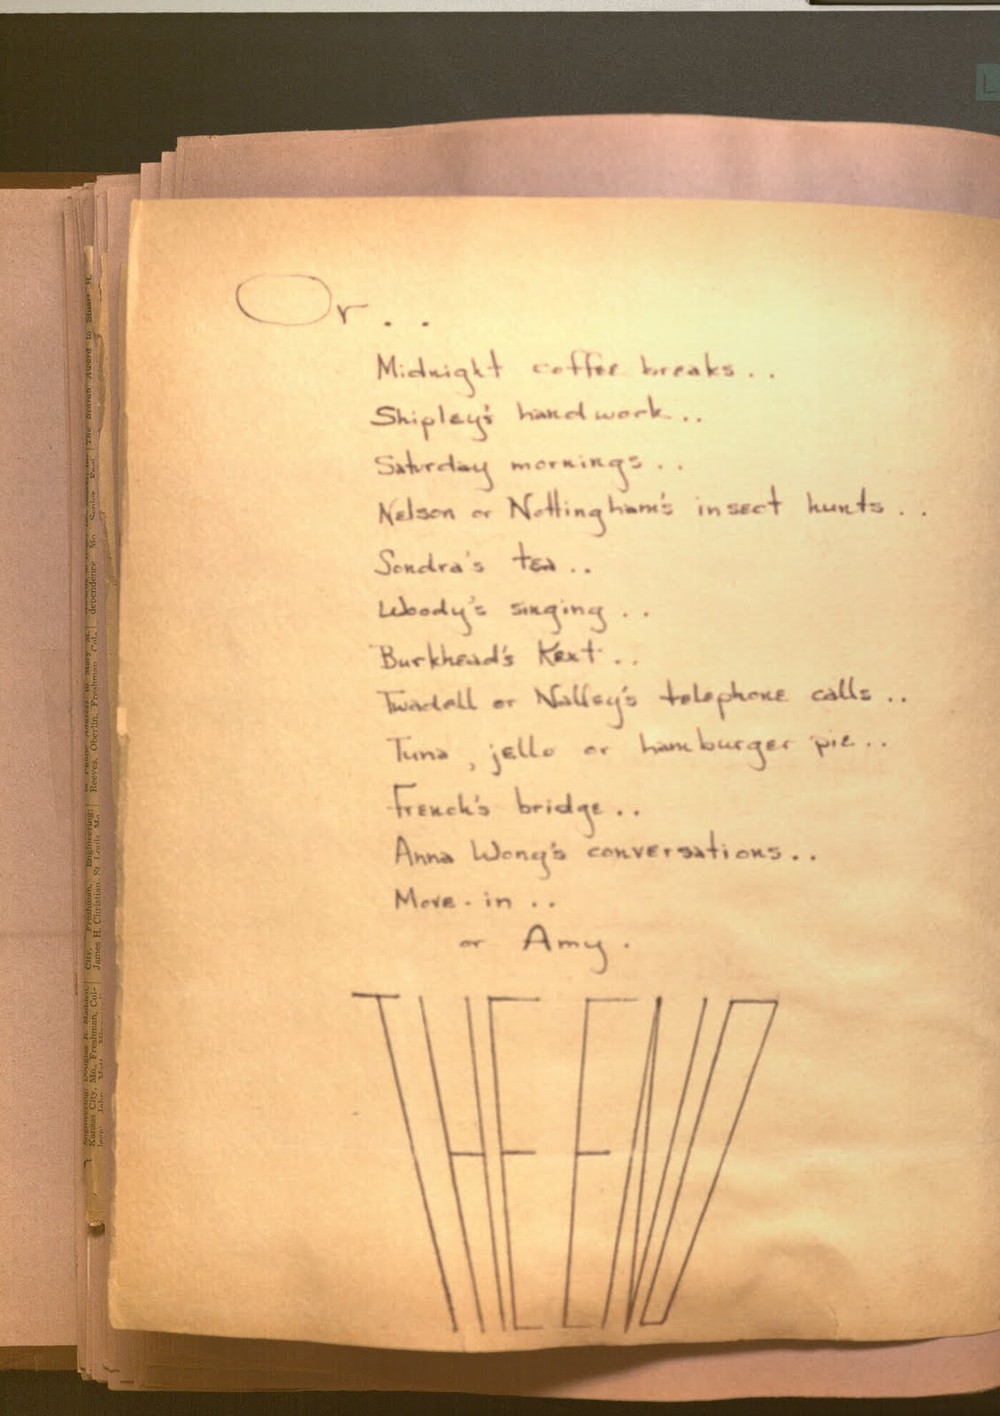 Or . .
Midnight coffee breaks . .
Shipley's handwork . .
Saturday mornings . .
Nelson or Nottingham's insect hunts . .
Sondra's tea . .
Woody's singing . .
Burkhead's Kext . .
Twadell or Nalley's telephone calls . .
Tuna , jello or hamburger pie . .
French's bridge . .
Anna Wong's conversations . .
Move - in . .
or Amy .
THE END